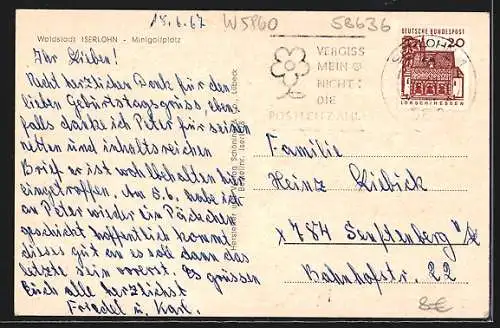 15.6.67 W5P60 58636
Waldstadt ISERLOHN - Minigolfplatz
Ihr Lieben!
Recht herzlichen Dank für den
lieben Geburtstagsgruss, eben-
falls danke ich Peter für seinen
netten und inhaltsreichen
Brief er ist wohlbehalten hier
eingetroffen. Am 8.6. habe ich
an Peter wieder ein Päckchen
geschickt hoffentlich kommt
dieses gut an es soll dann das
letzte sein vorerst. Es grüssen
Euch alle herzlichst
Friedel u. Karl.
Hersteller und Verlag Schöning & Co., Lübeck
Bestellnr. Iserl.
VERGISS
MEIN
NICHT:
DIE
POSTLEITZAHL
DEUTSCHE BUNDESPOST
20
LORSCH/HESSEN
Familie
Heinz Kiebück
x 784 Senftenberg N/L
Bahnhofstr. 22